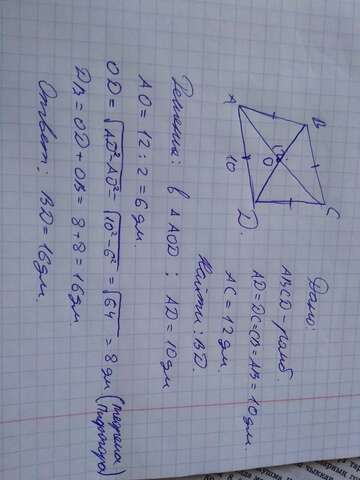 Дано:
ABCD - ромб.
AD=DC=CB=AB=10дм
AC=12дм.
Найти: BD.
A
B
C
D
O
10
Решение: в ΔAOD; AD=10дм
AO=12:2=6дм.
OD=√AD²-AO²=√10²-6²=√64=8дм (теорема Пифагора)
DB=OD+OB=8+8=16дм.
Ответ: BD=16дм.